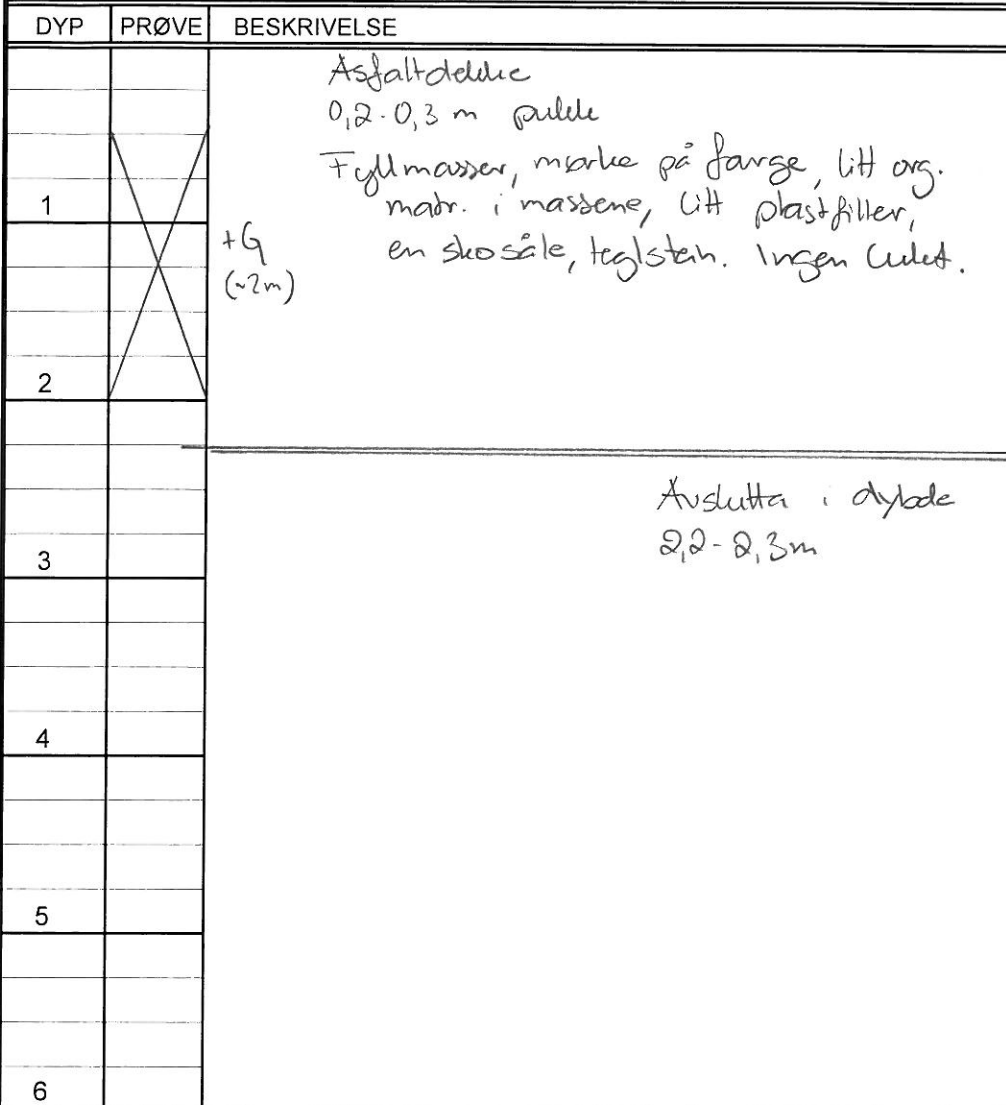 DYP PRØVE BESKRIVELSE
Asfaltdekke
0,2-0,3 m pukk
Fyllmasser, mørke på farge, litt org.
1 matr. i massene, litt plastfiller,
+G en skosåle, teglstein. Ingen lukt.
(~2m)
2
Avslutta i dybde
3 2,2-2,3m
4
5
6